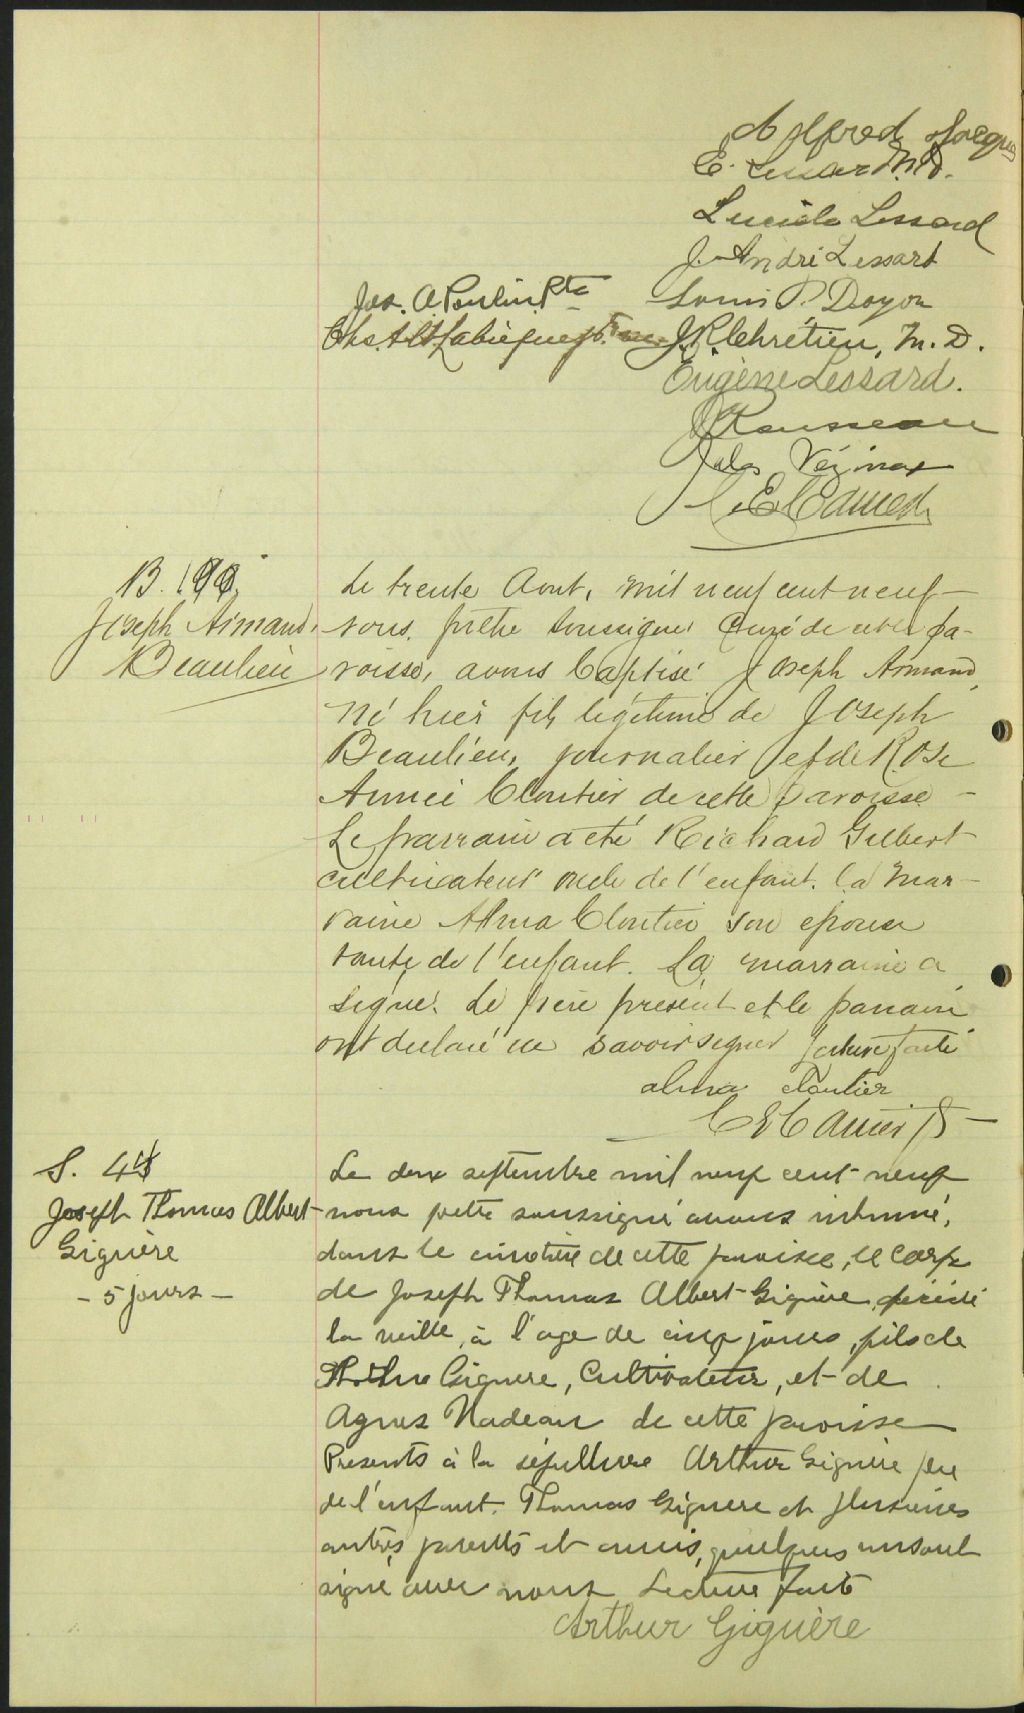 Alfred Jacques
E. Lessard M.D.
Lucida Lessard
J. André Lessard
Jos. A. Poulin Ptr Louis P. Doyon
J. R. Chrétien, M. D.
Eugène Lessard.
J Rousseau
Jules Vézina
B. 190
Joseph Armand
Beaulieu
Le trente Aout, mil neuf cent neuf
nous prêtre soussigné Curé de cette pa-
roisse, avons baptisé Joseph Armand,
né hier fils légitime de Joseph
Beaulieu, journalier et de Rose
Anneé Cloutier de cette paroisse -
Le parrain a été Richard Gilbert
cultivateur oncle de l'enfant. La mar-
raine Alma Cloutier son épouse
tante de l'enfant. La marraine a
signé. Le père présent et le parrain
ont déclaré ne savoir signer lecture faite
alma Cloutier
S. 45
Joseph Thomas Albert
Giguère
- 5 jours -
Le deux septembre mil neuf cent neuf
nous prêtre soussigné avons inhumé,
dans le cimetière de cette paroisse, le corps
de Joseph Thomas Albert Giguère, décédé
la veille, à l'age de cinq jours, fils de
Giguere, Cultivateur, et de
Agnes Nadeau de cette paroisse
Presents à la sépulture Arthur Giguère père
de l'enfant. Thomas Giguere et plusieurs
autres parents et amis, quelques uns ont
signé avec nous Lecture faite
Arthur Giguère